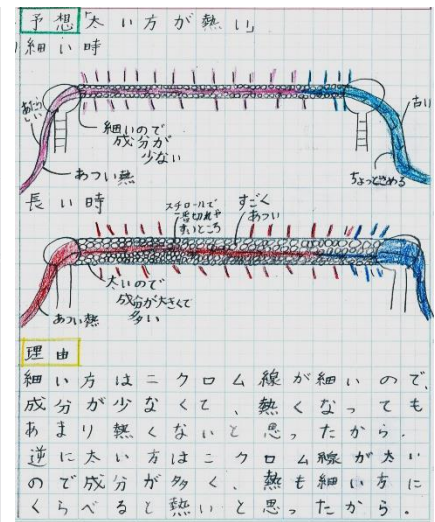 予想「太い方が熱い」
細い時
あたらしい
細いので
成分が
少ない
あつい熱
古い
ちょっとさめる
長い時
スチロールで
一番切れや
すいところ
すごく
あつい
太いので
成分が大きくて
多い
あつい熱
理由
細い方はニクロム線が細いので、
成分が少なくて、熱くなっても
あまり熱くないと思ったから。
逆に太い方はニクロム線が太い
ので成分が多く、熱も細い方に
くらべると熱いと思ったから。